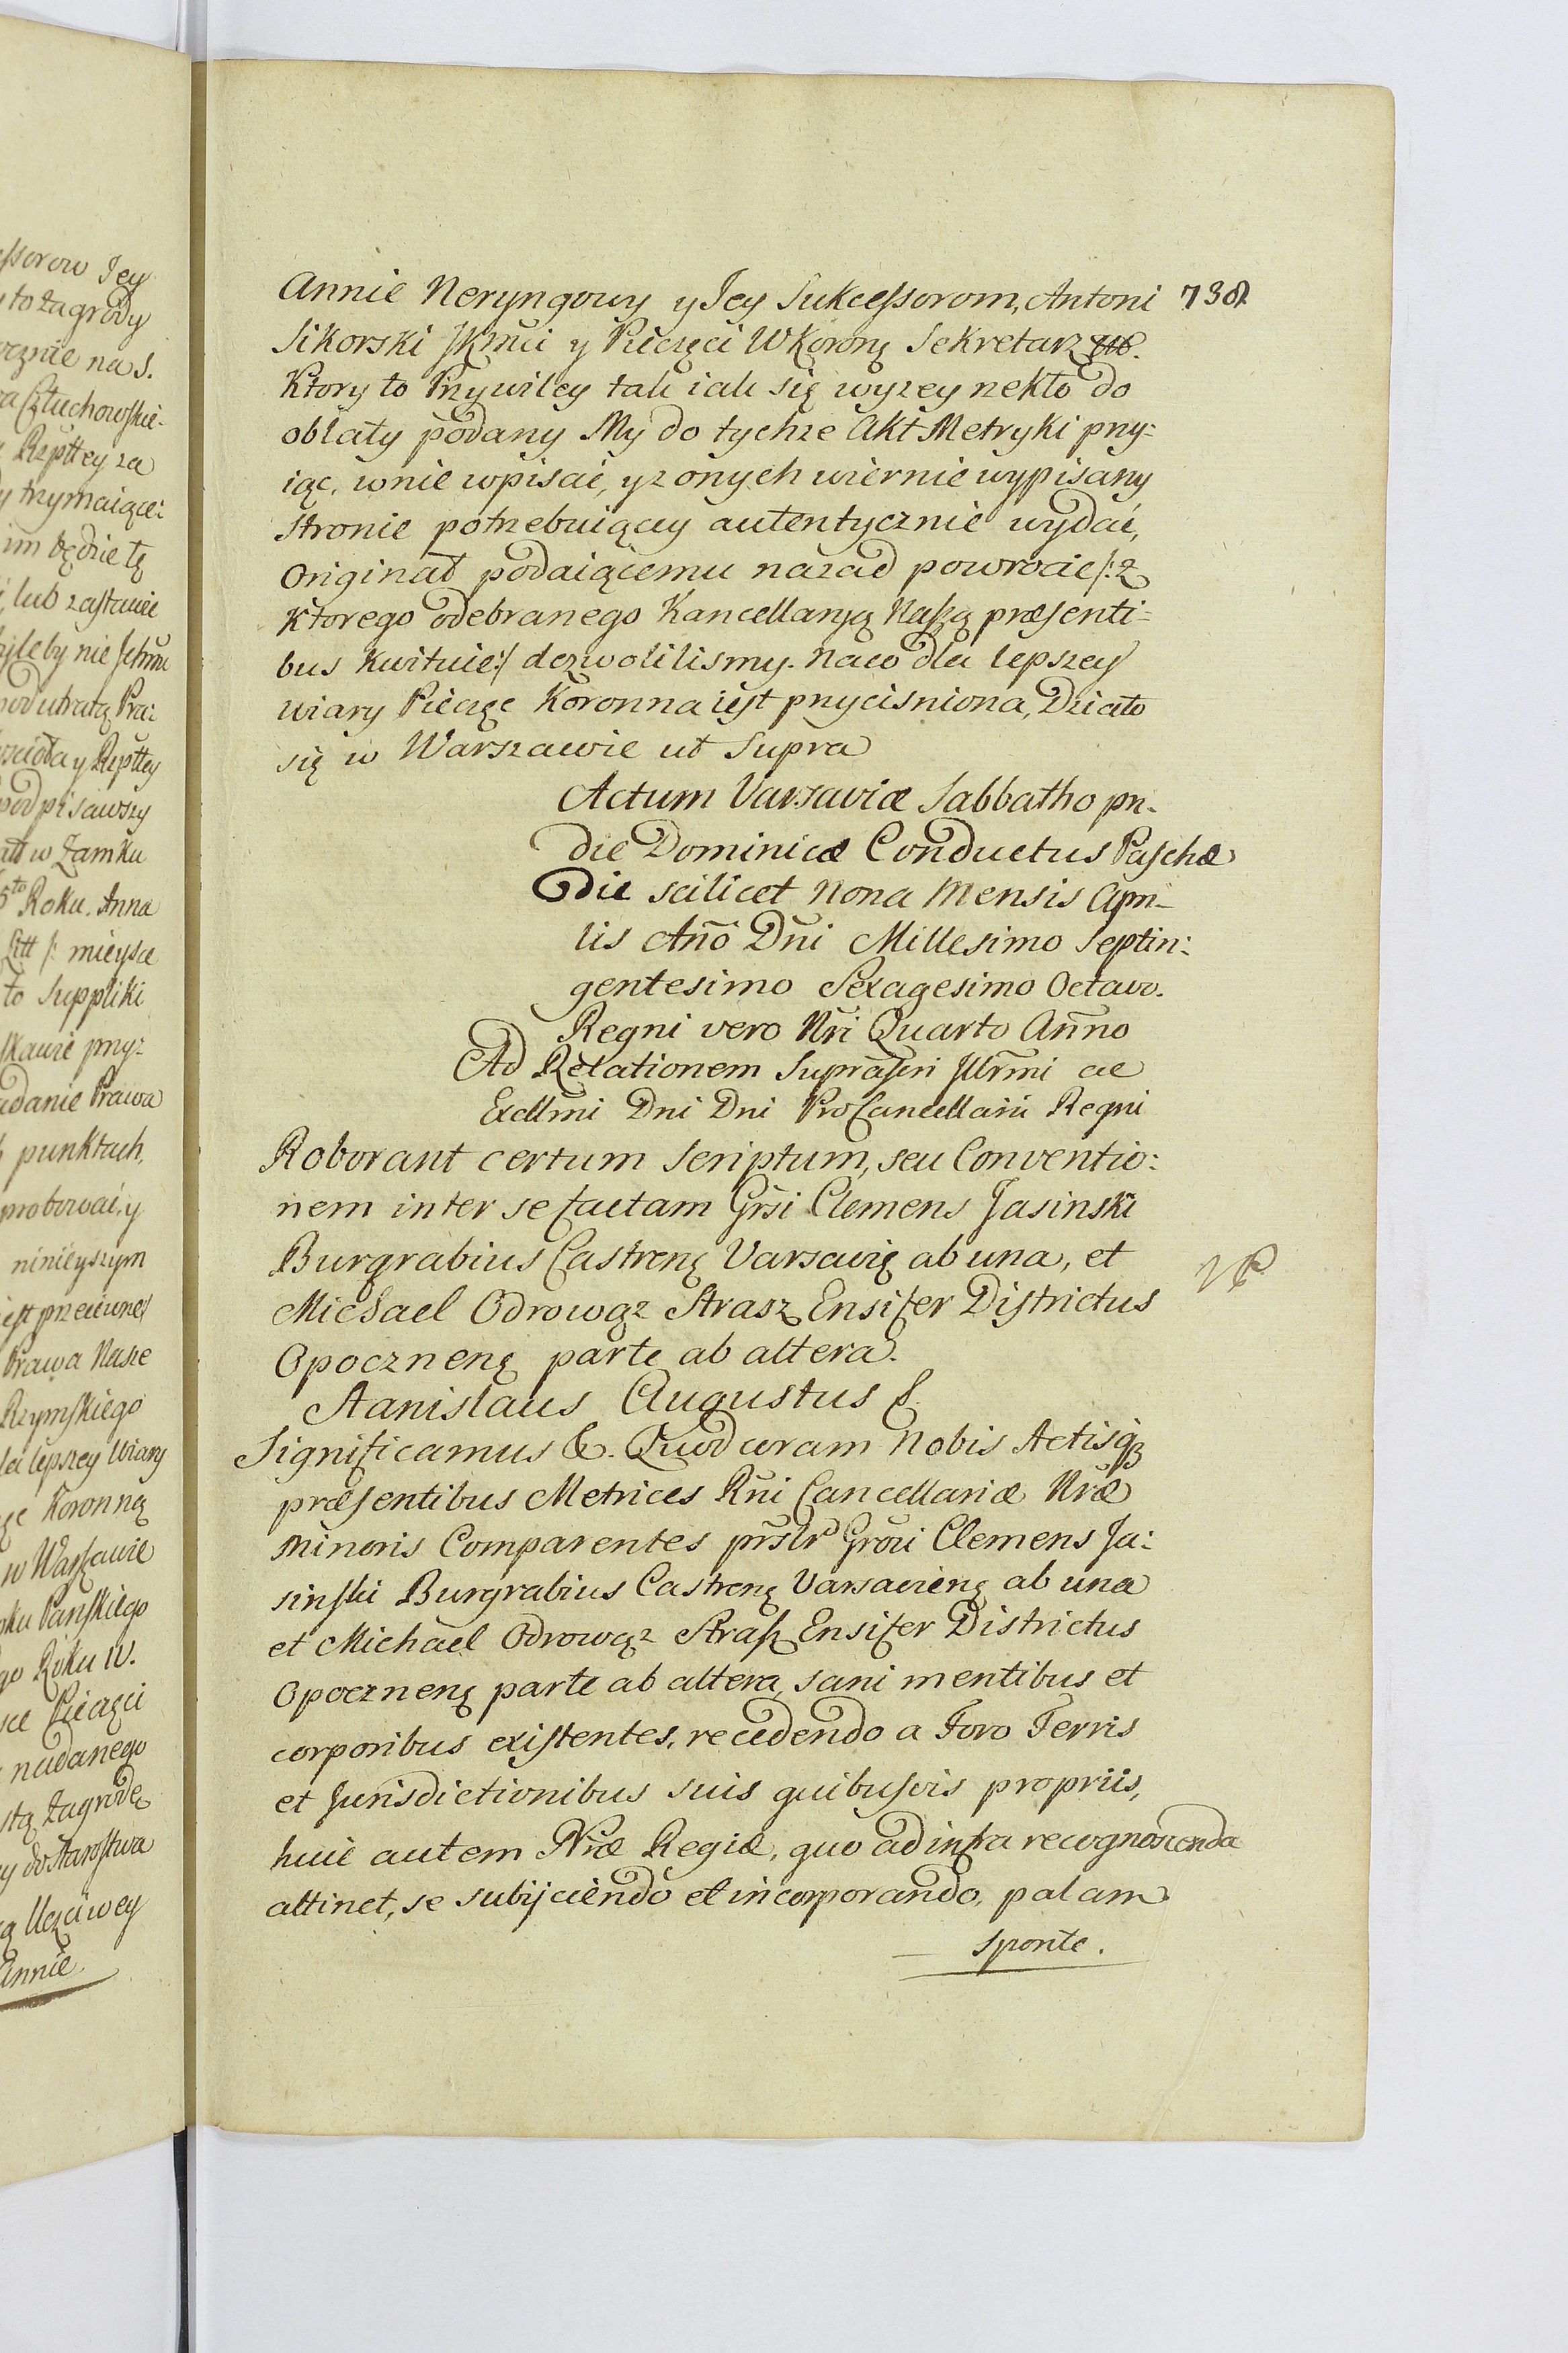 essorow Jey
to zagrody
ocznie na S.
Człuchowskie-
Rzpttey za
trzymaiące:
im będzie tę
lub zastawie
byleby nie
pod utratą Pra:
y Rzpttey
podpisawszy
w Zamku
5to Roku. Anna
Litt /: mieysce
to Suppliki
przy:
danie Prawa
punktach,
probować, y
ninieyszym
iest przeciwne/
Prawa Nasze
Rzymskiego
lepszey Wiary
Koronną
w Warszawie
Panskiego
go Roku IV.
Pieczęci
nadanego
Zagrodę
y do Starostwa
Uczciwey
Annie.
Annie Neryngowy y Jey Sukcessorom, Antoni 738
Sikorski JKMci y Pieczęci WKoronę Sekretarz mp.
Ktory to Przywiley tak iak się wyzey rzekło do
oblaty podany My do tychze Akt Metryki przy:
iąc, wnie wpisać, y z onych wiernie wypisany
Stronie potrzebuiącey autentycznie wydać,
Originał podaiącemu nazad powrocić /: z
Ktorego odebranego Kancellaryą Naszą præsenti-
bus kwituie :/ dozwolilismy. Na co dla lepszey
wiary Pieczęc Koronna iest przycisniona, Działo
się w Warszawie ut Supra
Actum Varsaviæ Sabbatho pri-
die Dominicæ Conductus Paschæ
Die scilicet Nona Mensis Apri-
lis Añõ Dñi Millesimo Septin:
gentesimo Sexagesimo Octavo.
Regni vero Nri Quarto Anno
Ad Relationem Suprascri Jllrmi ac
Excllmi Dni Dni ProCancellarii Regni
Roborant certum Scriptum, seu Conventio:
nem inter se factam Grsi Clemens Jasinski
Burgrabius Castrenę Varsavię ab una, et
Michael Odrowąz Strasz Ensifer Districtus
Opocznenę parte ab altera.
Stanislaus Augustus &
Significamus &. Quod coram Nobis Actisqȝ
præsentibus Metrices Rñi Cancellariæ Nræ
Minoris Comparentes prslr Grosi Clemens Ja:
sinski Burgrabius Castrenę Varsavienę ab una
et Michael Odrowąz Strasz Ensifer Districtus
Opocznenę parte ab altera, sani mentibus et
corporibus existentes, recedendo a Foro Terris
et Jurisdictionibus suis quibusvis propriis,
huic autem Nræ Regiæ, quo ad infra recognoscenda
attinet, se subijciendo et incorporando, palam
sponte.